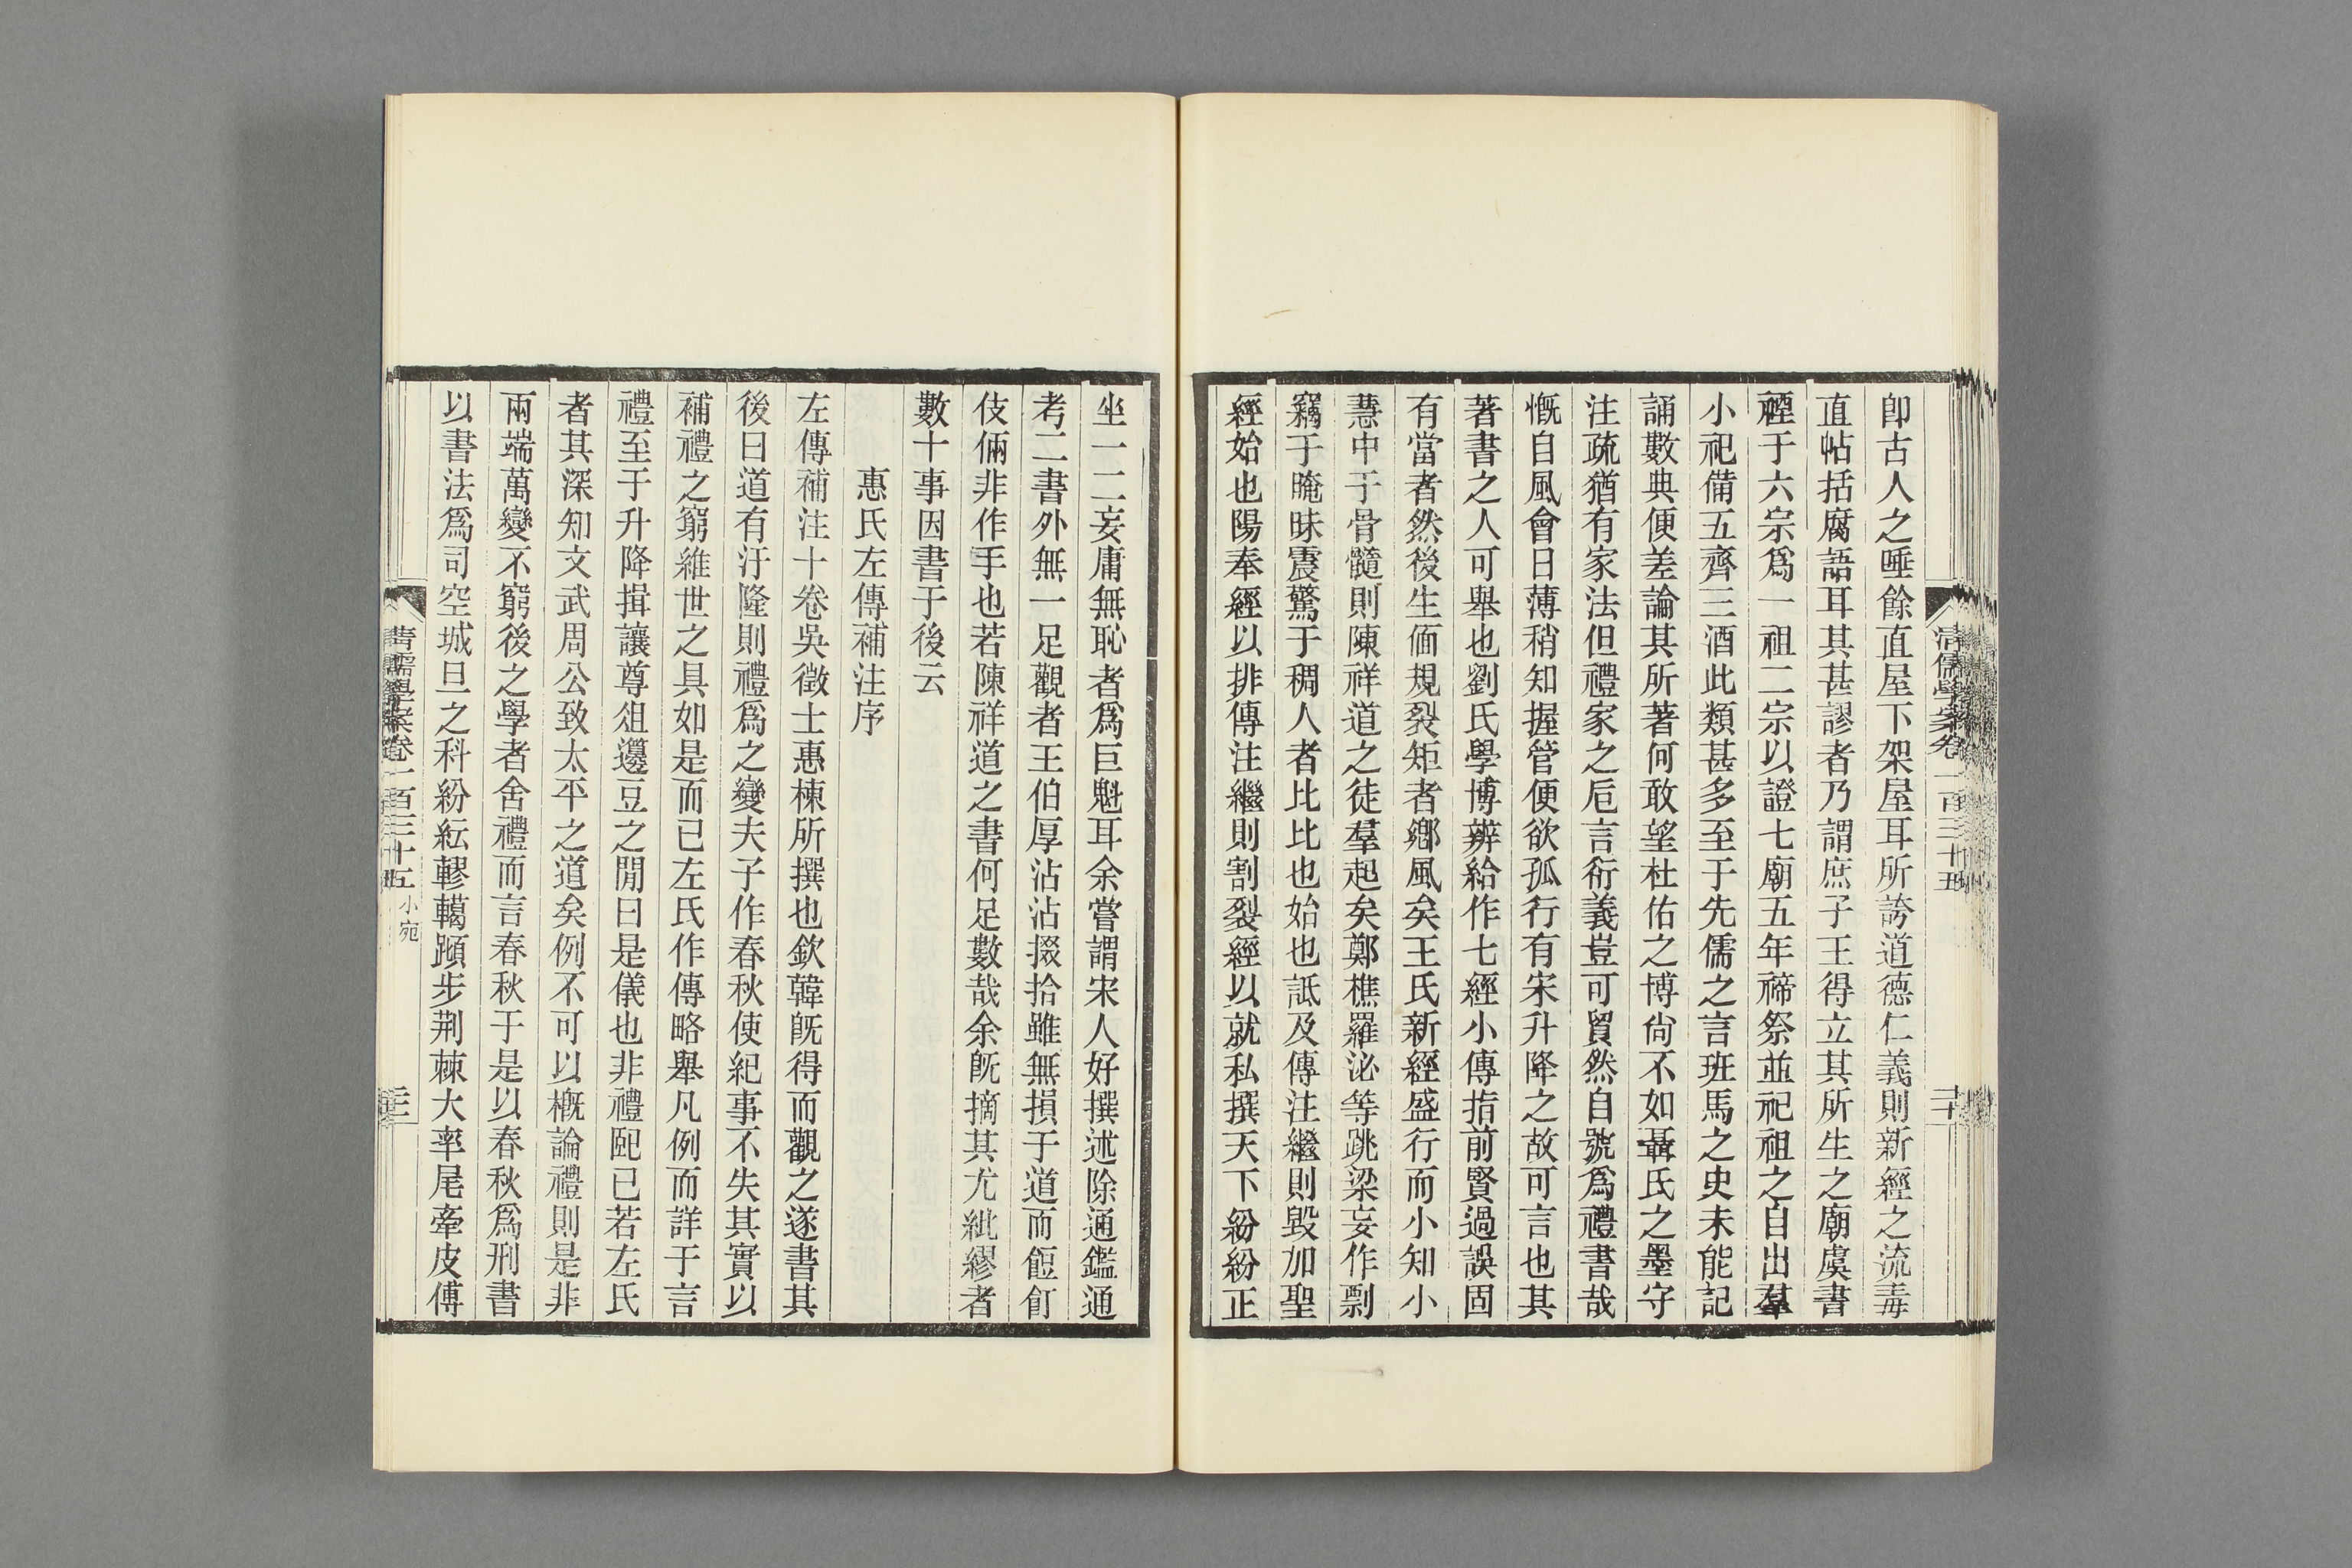 卽古人之唾餘直屋下架屋耳所誇道德仁義則新經之流毒
直帖括腐語耳其甚謬者乃謂庶子王得立其所生之廟虞書
禋于六宗爲一祖二宗以證七廟五年禘祭並祀祖之自出羣
小祀備五齊三酒此類甚多至于先儒之言班馬之史未能記
誦數典便差論其所著何敢望杜佑之博尙不如聶氏之墨守
注疏猶有家法但禮家之卮言衍義豈可貿然自號爲禮書哉
慨自風會日薄稍知握管便欲孤行有宋升降之故可言也其
著書之人可舉也劉氏學博辨給作七經小傳指前賢過誤固
有當者然後生偭規裂矩者鄕風矣王氏新經盛行而小知小
慧中于骨髓則陳祥道之徒羣起矣鄭樵羅泌等跳梁妄作剽
竊于晻昧震驚于稠人者比比也始也詆及傳注繼則毀加聖
經始也陽奉經以排傳注繼則割裂經以就私撰天下紛紛正
清儒學案卷一百三十五
二十
坐一二妄庸無恥者爲巨魁耳余嘗謂宋人好撰述除通鑑通
考二書外無一足觀者王伯厚沾沾掇拾雖無損于道而餖飣
伎倆非作手也若陳祥道之書何足數哉余旣摘其尤紕繆者
數十事因書于後云
惠氏左傳補注序
左傳補注十卷吳徵士惠棟所撰也欽韓旣得而觀之遂書其
後曰道有汙隆則禮爲之變夫子作春秋使紀事不失其實以
補禮之窮維世之具如是而已左氏作傳略舉凡例而詳于言
禮至于升降揖讓尊俎籩豆之閒曰是儀也非禮䣛已若左氏
者其深知文武周公致太平之道矣例不可以槪論禮則是非
兩端萬變不窮後之學者舍禮而言春秋于是以春秋爲刑書
以書法爲司空城旦之科紛紜轇轕蹞步荆棘大率尾牽皮傅
清儒學案卷一百三十五 小宛